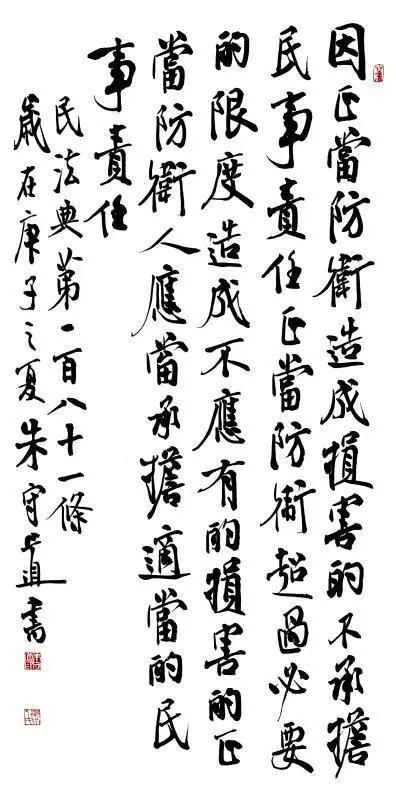 因正當防衛造成損害的不承擔
民事責任正當防衛超過必要
的限度造成不應有的損害的正
當防衛人應當承擔適當的民
事責任
民法典第一百八十一條
歲在庚子之夏朱守道書